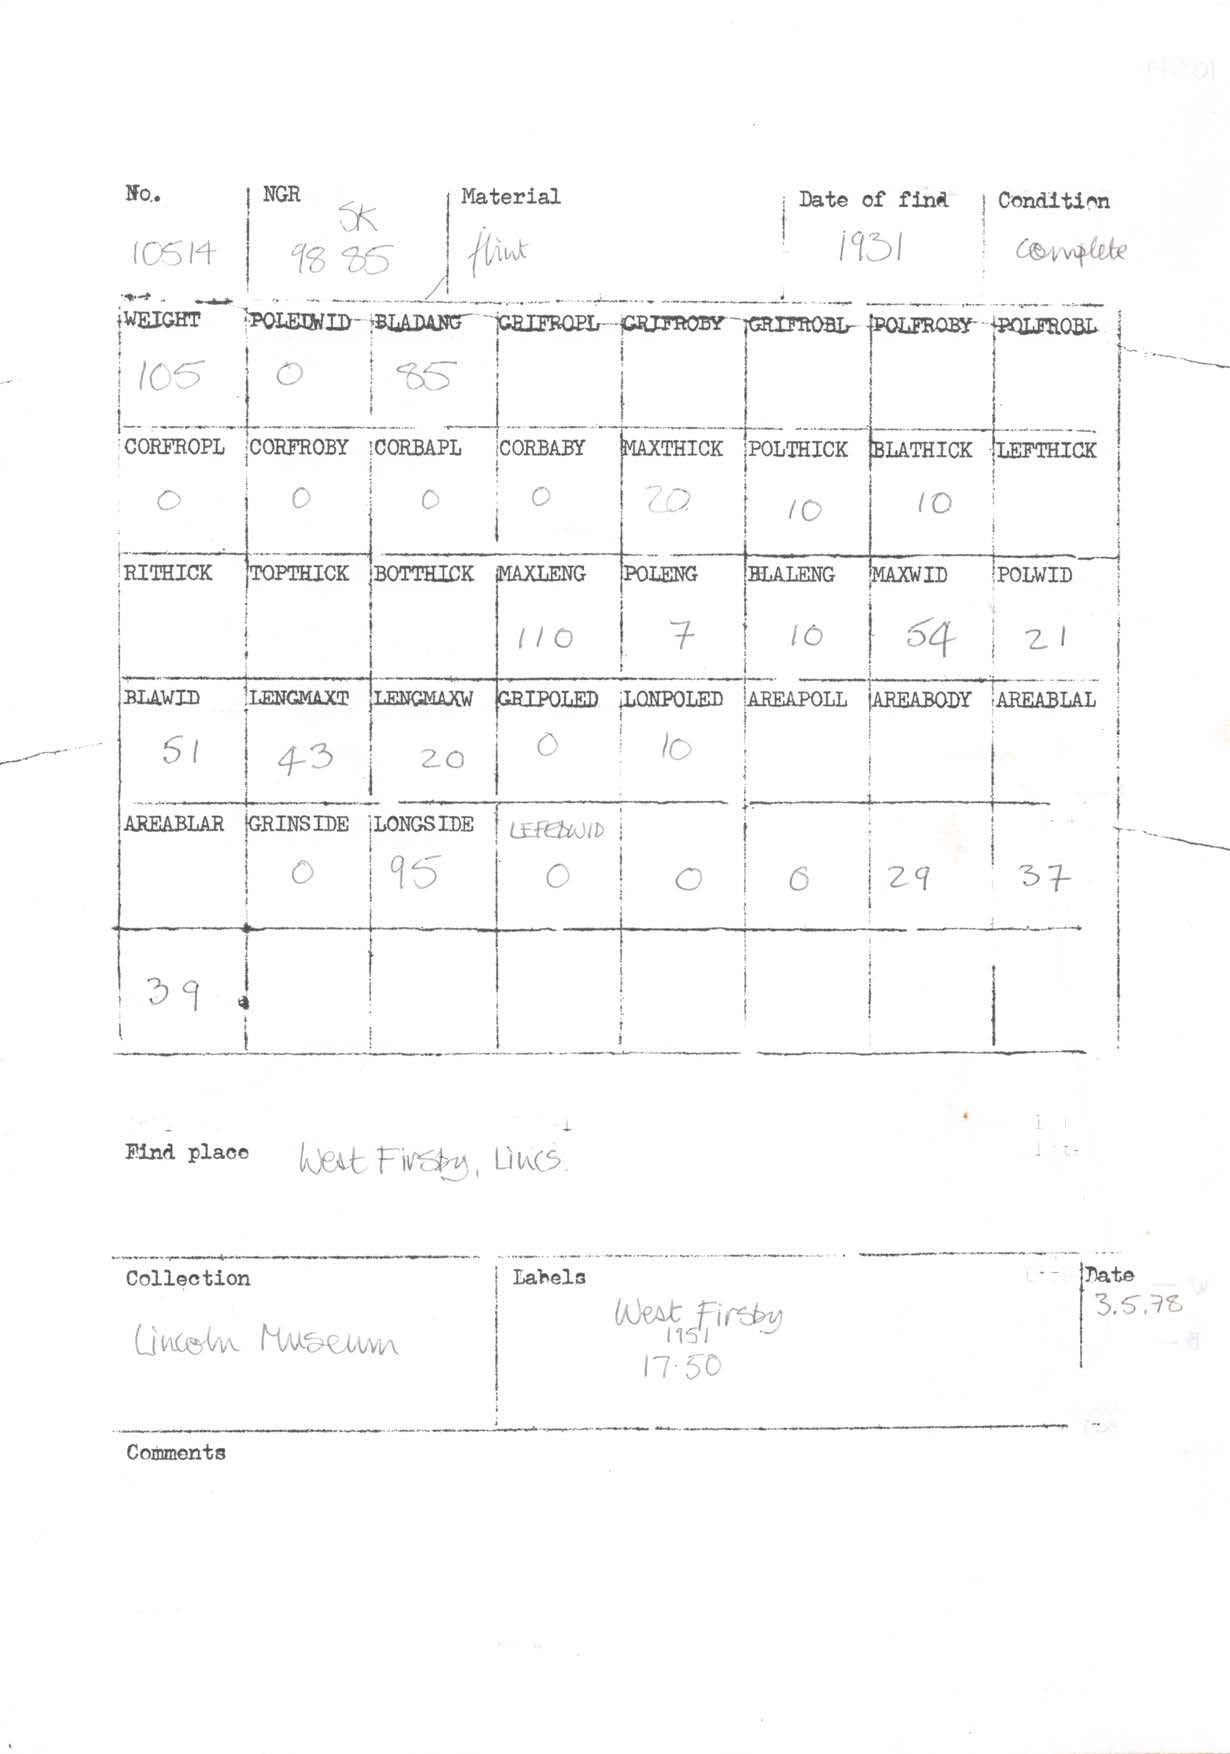 No. NGR Material Date of find Condition
SK
10514 98 85 flint 1931 complete
WEIGHT POLEDWID BLADANG GRIFROPL GRIFROBY GRIFROBL POLFROBY POLFROBL
105 0 85
CORFROPL CORFROBY CORBAPL CORBABY MAXTHICK POLTHICK BLATHICK LEFTHICK
0 0 0 0 20 10 10
RITHICK TOPTHICK BOTTHICK MAXLENG POLENG BLALENG MAXWID POLWID
110 7 10 54 21
BLAWID LENGMAXT LENGMAXW GRIPOLED LONPOLED AREAPOLL AREABODY AREABLAL
51 43 20 0 10
AREABLAR GRINSIDE LONGSIDE LEFEDWID
0 95 0 0 0 29 37
39
Find place West Firsby, Lincs.
Collection Labels Date
Lincoln Museum West Firsby 3.5.78
1951
17.50
Comments